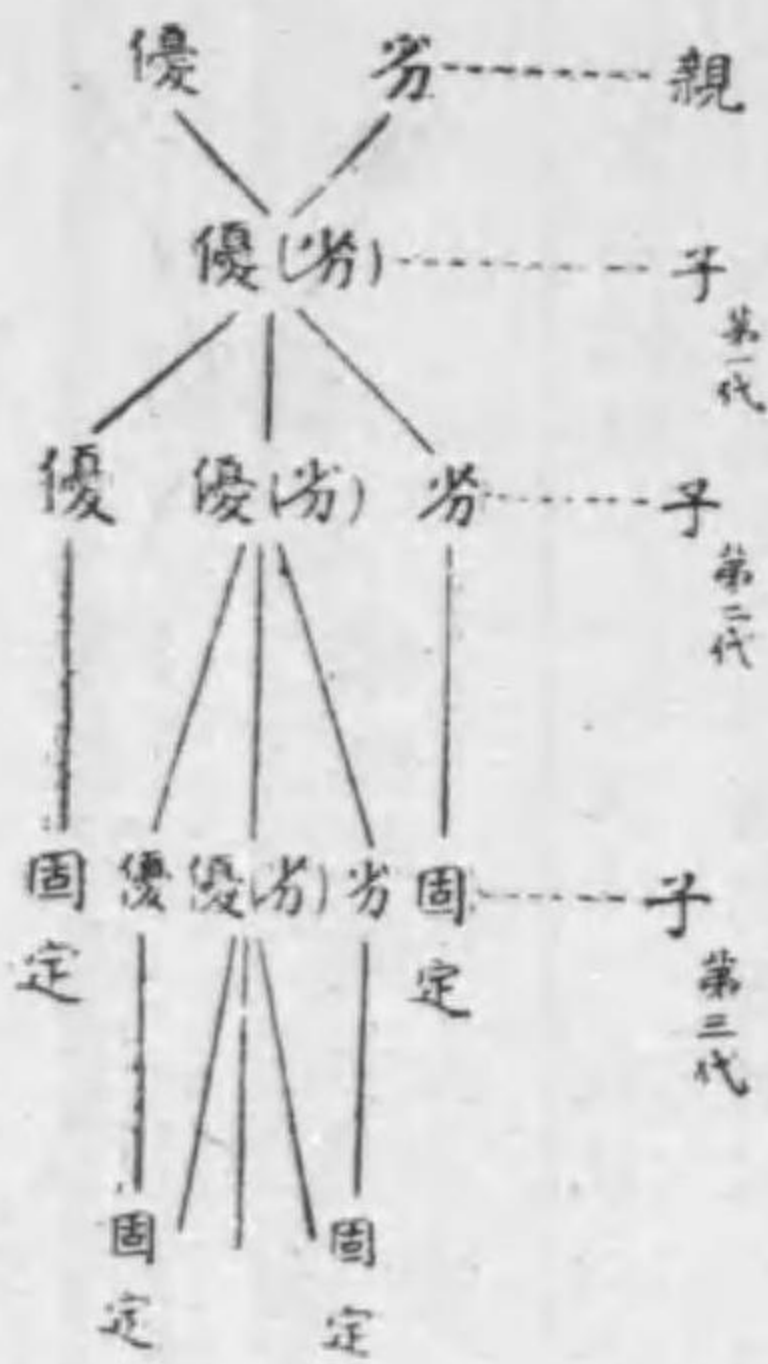 優 劣 親
優(劣) 子
第一代
優 優(劣) 劣 子
第二代
固定 優 優(劣) 劣 固定 子
第三代
固定 固定